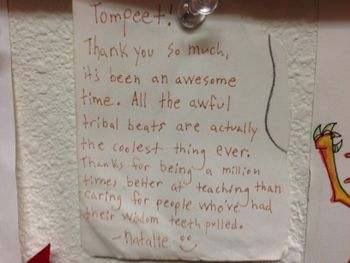 Tompeet!
Thank you so much,
it's been an awesome
time. All the awful
tribal beats are actually
the coolest thing ever.
Thanks for being a million
times better at teaching than
caring for people who've had
their wisdom teeth pulled.
- Natalie